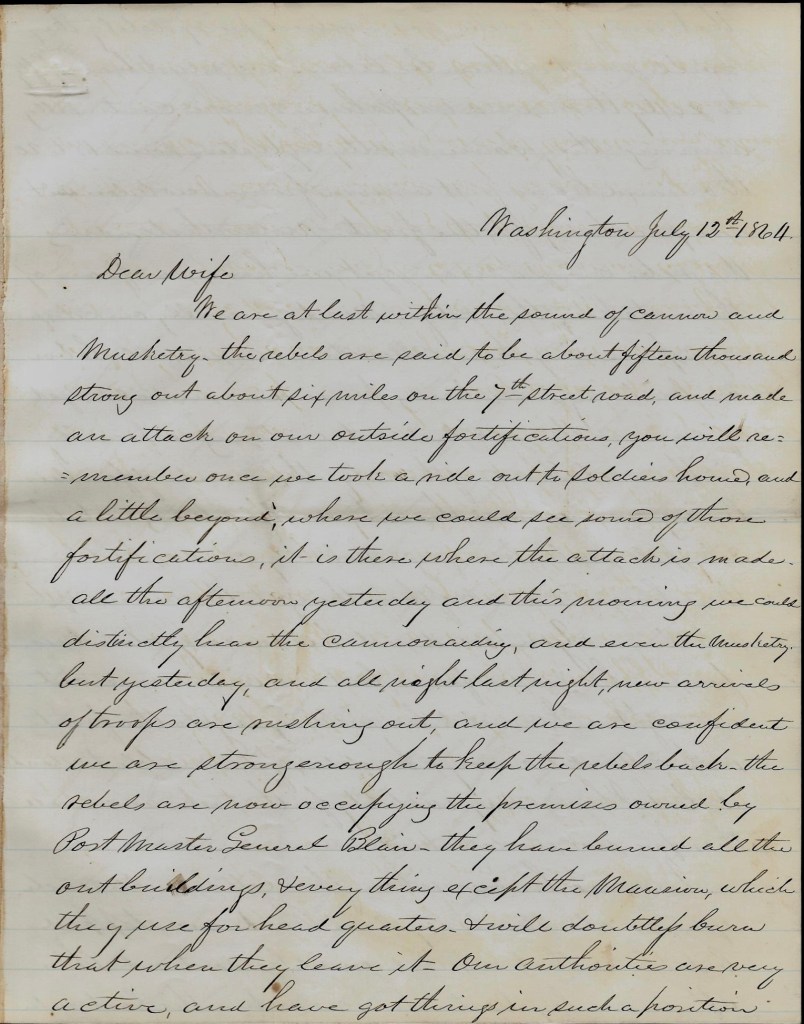 Washington July 12th 1864.
Dear Wife
We are at last within the sound of cannon and
Musketry - the rebels are said to be about fifteen thousand
strong out about six miles on the 7th street road, and made
an attack on our outside fortifications, you will re=
=member once we took a ride out to Soldiers home, and
a little beyond, where we could see some of those
fortifications, it is there where the attack is made -
all the afternoon yesterday and this morning we could
distinctly hear the cannonaiding, and even the Musketry.
but yesterday, and all night last night, new arrivals
of troops are rushing out, and we are confident
we are strong enough to keep the rebels back - the
rebels are now occupying the premises owned by
Post Master General Blair - they have burned all the
out buildings, & every thing except the Mansion, which
they use for head quarters - & will doubtless burn
that when they leave it - Our authorities are very
active, and have got things in such a position